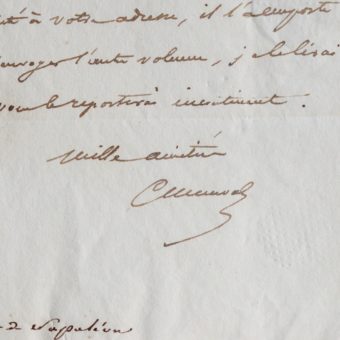 à votre adresse, il l'emporte
l'autre volume, je le lirai
vous le reporterai incessamment.
mille amitiés
Meneval
de Napoléon